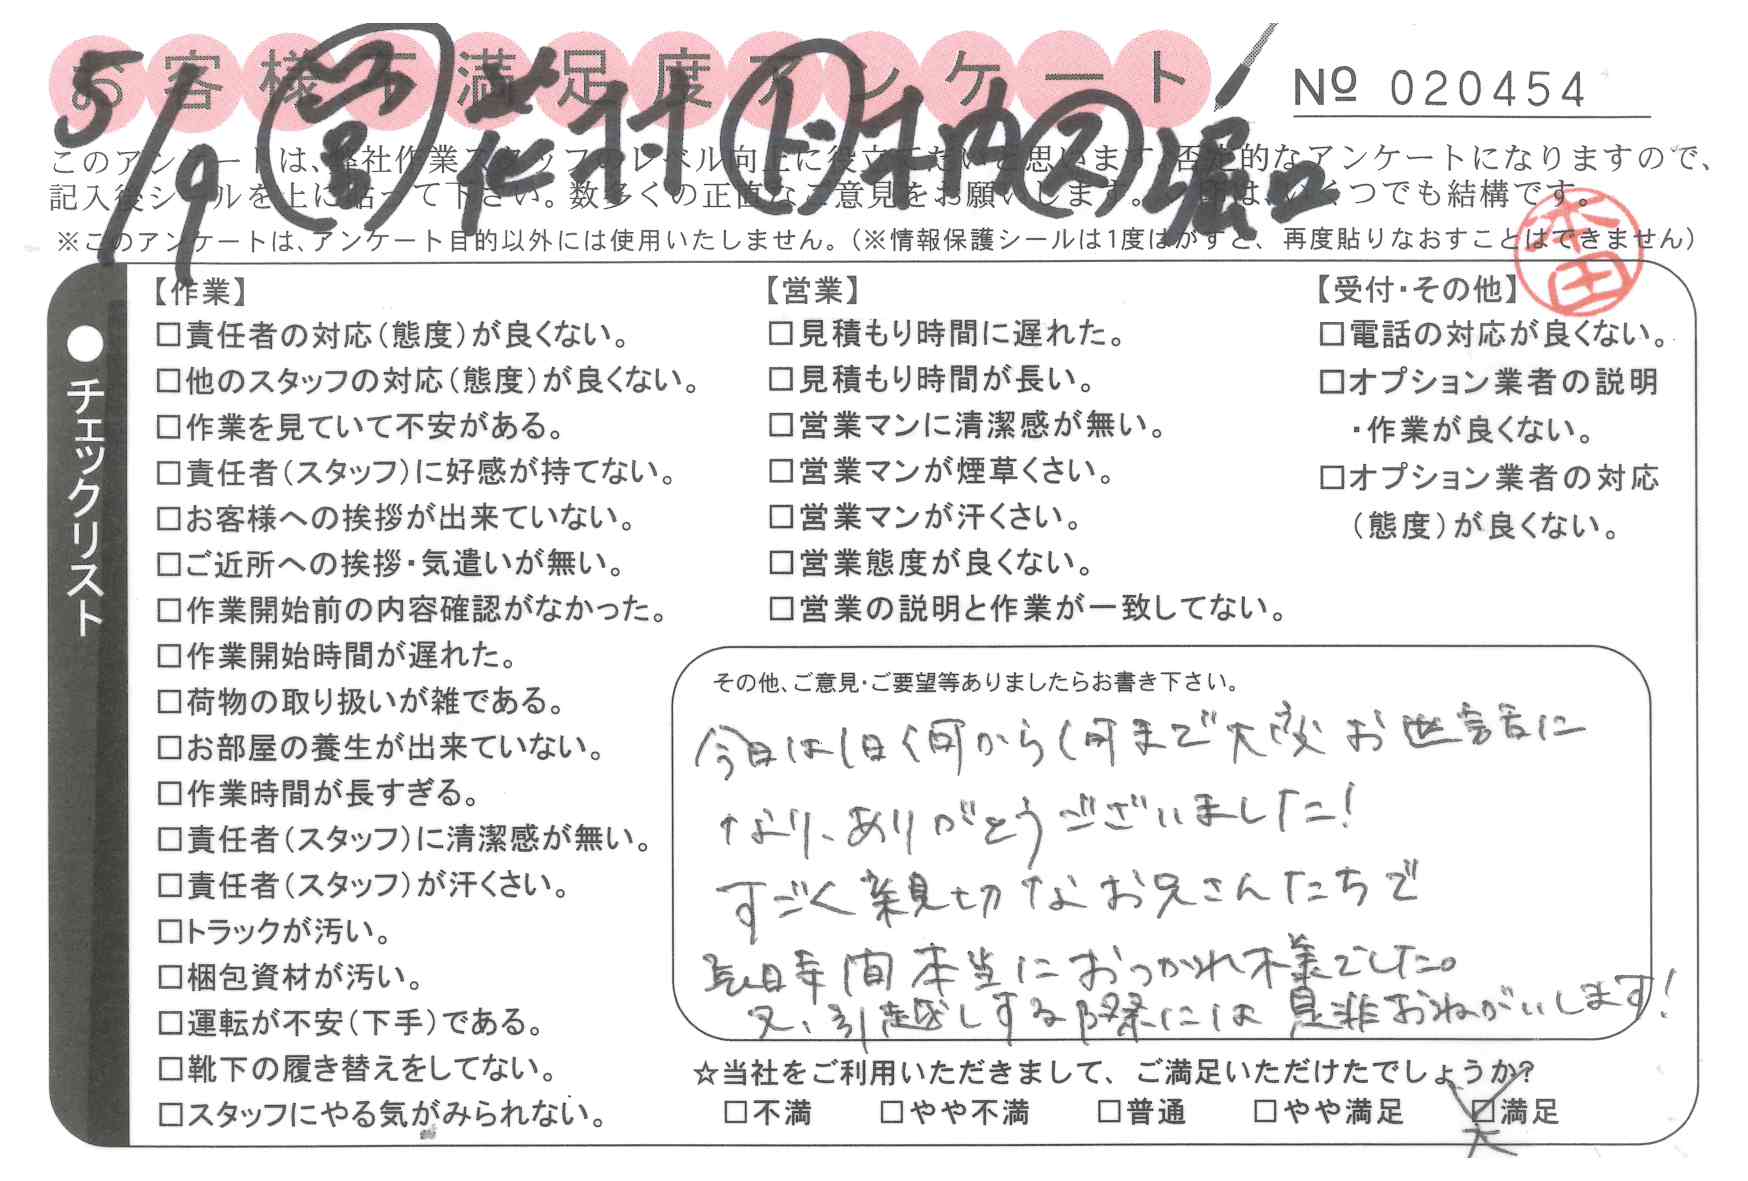 お客様不満足度アンケート
№ 020454
5/9 営 花村 ド 木和 ス 堀口
このアンケートは、弊社作業スタッフのレベル向上に役立てたいと思います。否定的なアンケートになりますので、
記入後シールを上に貼って下さい。数多くの正直なご意見をお願いします。いくつでも結構です。
※このアンケートは、アンケート目的以外には使用いたしません。(※情報保護シールは1度はがすと、再度貼りなおすことはできません)
本田
●チェックリスト
【作業】
□責任者の対応(態度)が良くない。
□他のスタッフの対応(態度)が良くない。
□作業を見ていて不安がある。
□責任者(スタッフ)に好感が持てない。
□お客様への挨拶が出来ていない。
□ご近所への挨拶・気遣いが無い。
□作業開始前の内容確認がなかった。
□作業開始時間が遅れた。
□荷物の取り扱いが雑である。
□お部屋の養生が出来ていない。
□作業時間が長すぎる。
□責任者(スタッフ)に清潔感が無い。
□責任者(スタッフ)が汗くさい。
□トラックが汚い。
□梱包資材が汚い。
□運転が不安(下手)である。
□靴下の履き替えをしてない。
□スタッフにやる気がみられない。
【営業】
□見積もり時間に遅れた。
□見積もり時間が長い。
□営業マンに清潔感が無い。
□営業マンが煙草くさい。
□営業マンが汗くさい。
□営業態度が良くない。
□営業の説明と作業が一致してない。
【受付・その他】
□電話の対応が良くない。
□オプション業者の説明
・作業が良くない。
□オプション業者の対応
(態度)が良くない。
その他、ご意見・ご要望等ありましたらお書き下さい。
今日は1日何から何まで大変お世話に
なり、ありがとうございました!
すごく親切なお兄さんたちで
長時間本当におつかれ様でした。
又、引越しする際には是非おねがいします!
☆当社をご利用いただきまして、ご満足いただけたでしょうか?
□不満 □やや不満 □普通 □やや満足 □満足
大